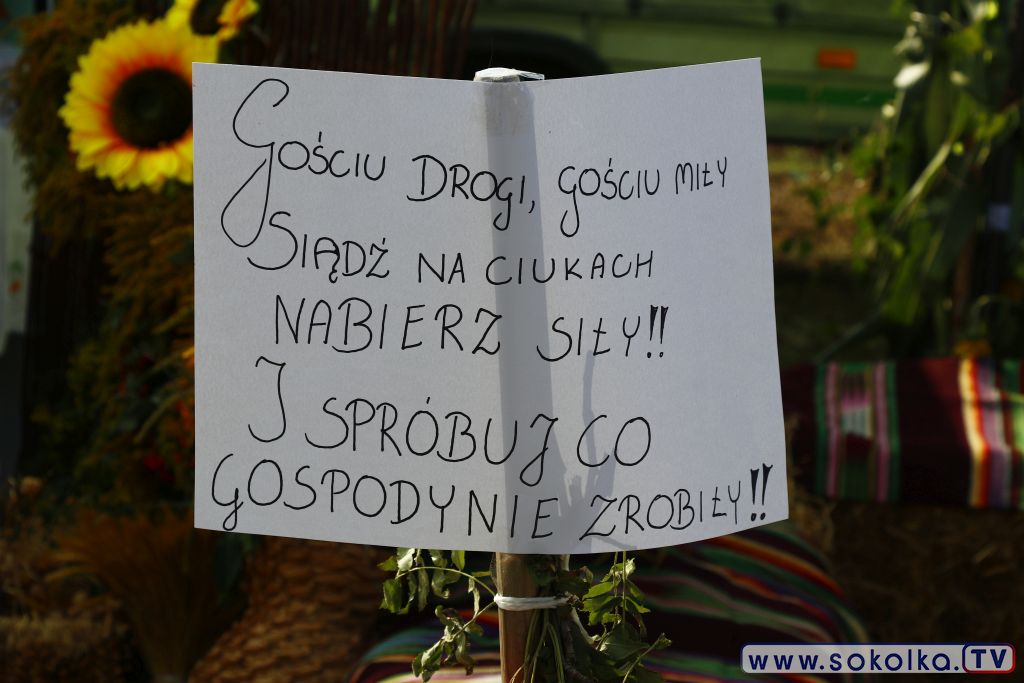 Gościu DROGI, GOŚCIU MIŁY
SIĄDŹ NA CIUKACH
NABIERZ SIŁY!!
I SPRÓBUJ CO
GOSPODYNIE ZROBIŁY!!
www.sokolka.TV